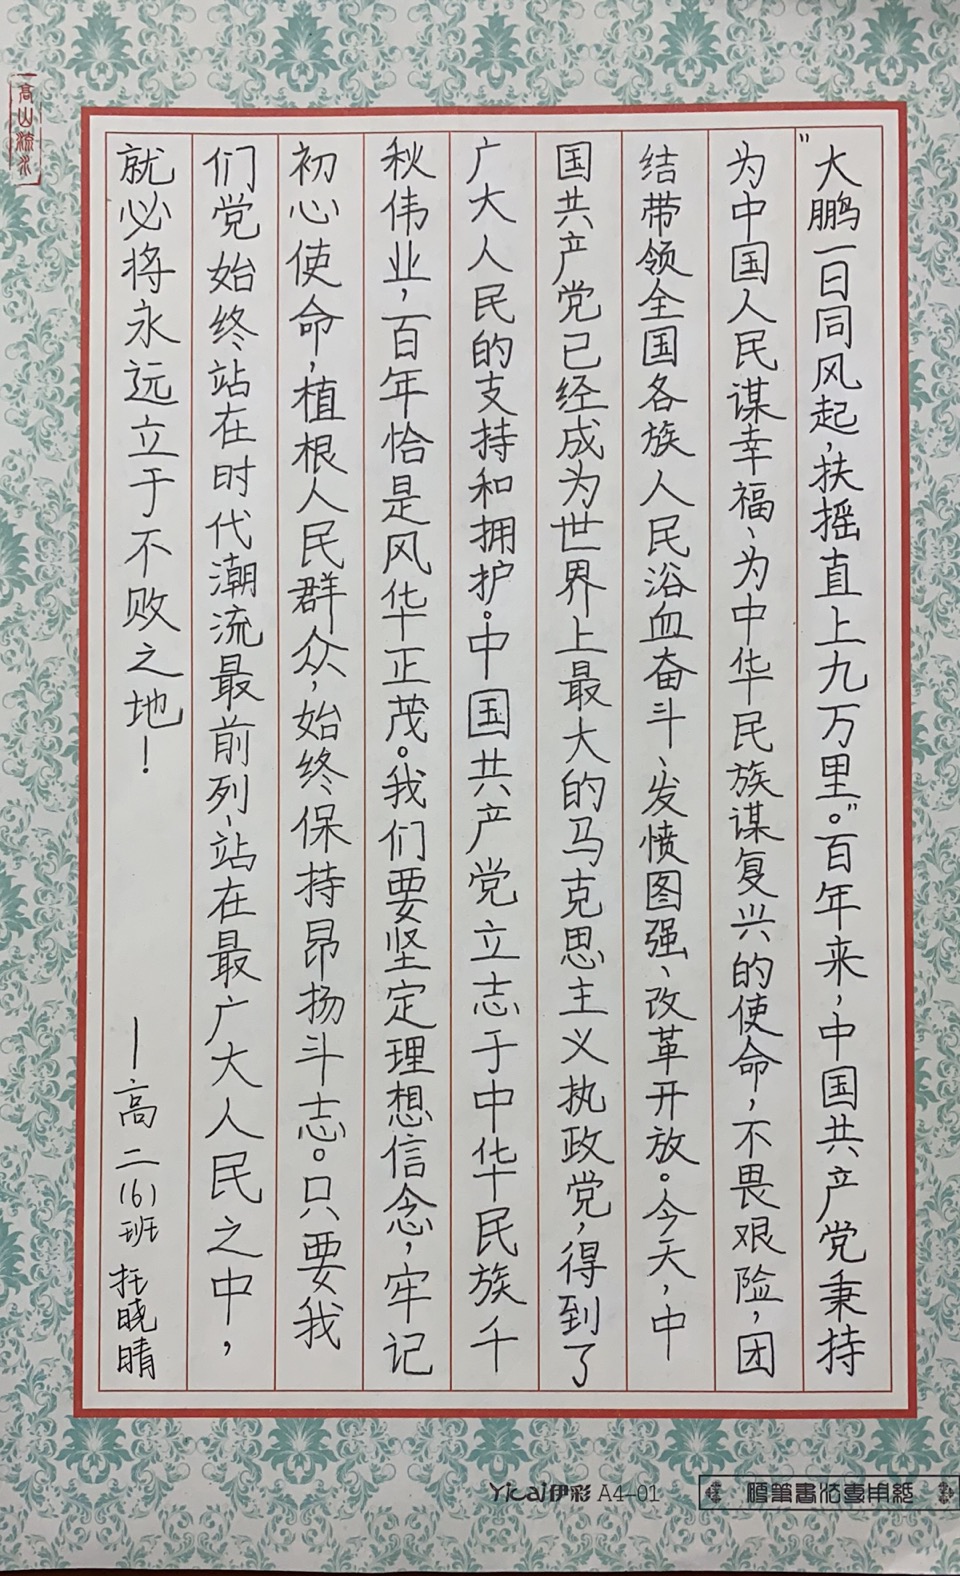 "大鹏一日同风起，扶摇直上九万里。"百年来，中国共产党秉持
为中国人民谋幸福、为中华民族谋复兴的使命，不畏艰险，团
结带领全国各族人民浴血奋斗、发愤图强、改革开放。今天，中
国共产党已经成为世界上最大的马克思主义执政党，得到了
广大人民的支持和拥护。中国共产党立志于中华民族千
秋伟业，百年恰是风华正茂。我们要坚定理想信念，牢记
初心使命，植根人民群众，始终保持昂扬斗志。只要我
们党始终站在时代潮流最前列、站在最广大人民之中，
就必将永远立于不败之地！
——高二(6)班 托晓晴
高山流水
Yicai伊彩 A4-01
硬笔书法专用纸